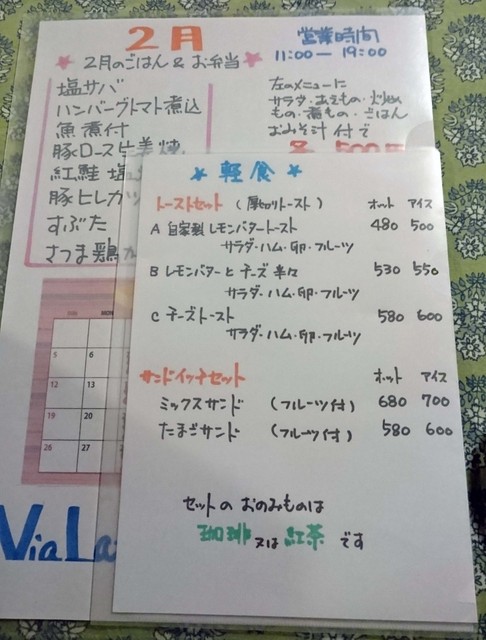 2月
2月のごはん & お弁当
塩サバ
ハンバーグトマト煮込
魚煮付
豚ロース生姜焼
紅鮭 塩
豚ヒレカツ
すぶた
さつま鶏
営業時間
11:00 ー 19:00
左のメニューに
サラダ・あえもの・炒め
もの・煮もの・ごはん
おみそ汁 付で
各 500円
5 6
12 13
19 20
26 27
Via La
軽食
トーストセット (厚切りトースト) ホット アイス
A 自家製レモンバタートースト 480 500
サラダ・ハム・卵・フルーツ
B レモンバターとチーズ半々 530 550
サラダ・ハム・卵・フルーツ
C チーズトースト 580 600
サラダ・ハム・卵・フルーツ
サンドイッチセット ホット アイス
ミックスサンド (フルーツ付) 680 700
たまごサンド (フルーツ付) 580 600
セットの おのみものは
珈琲 又は 紅茶 です